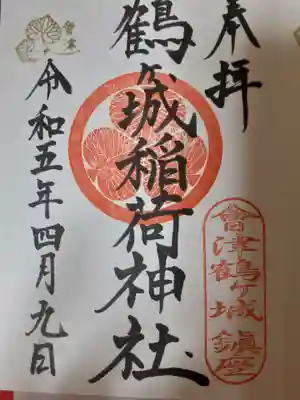 奉拝
會津鶴ヶ城 鎮座
鶴ヶ城稲荷神社
令和五年四月九日
會津